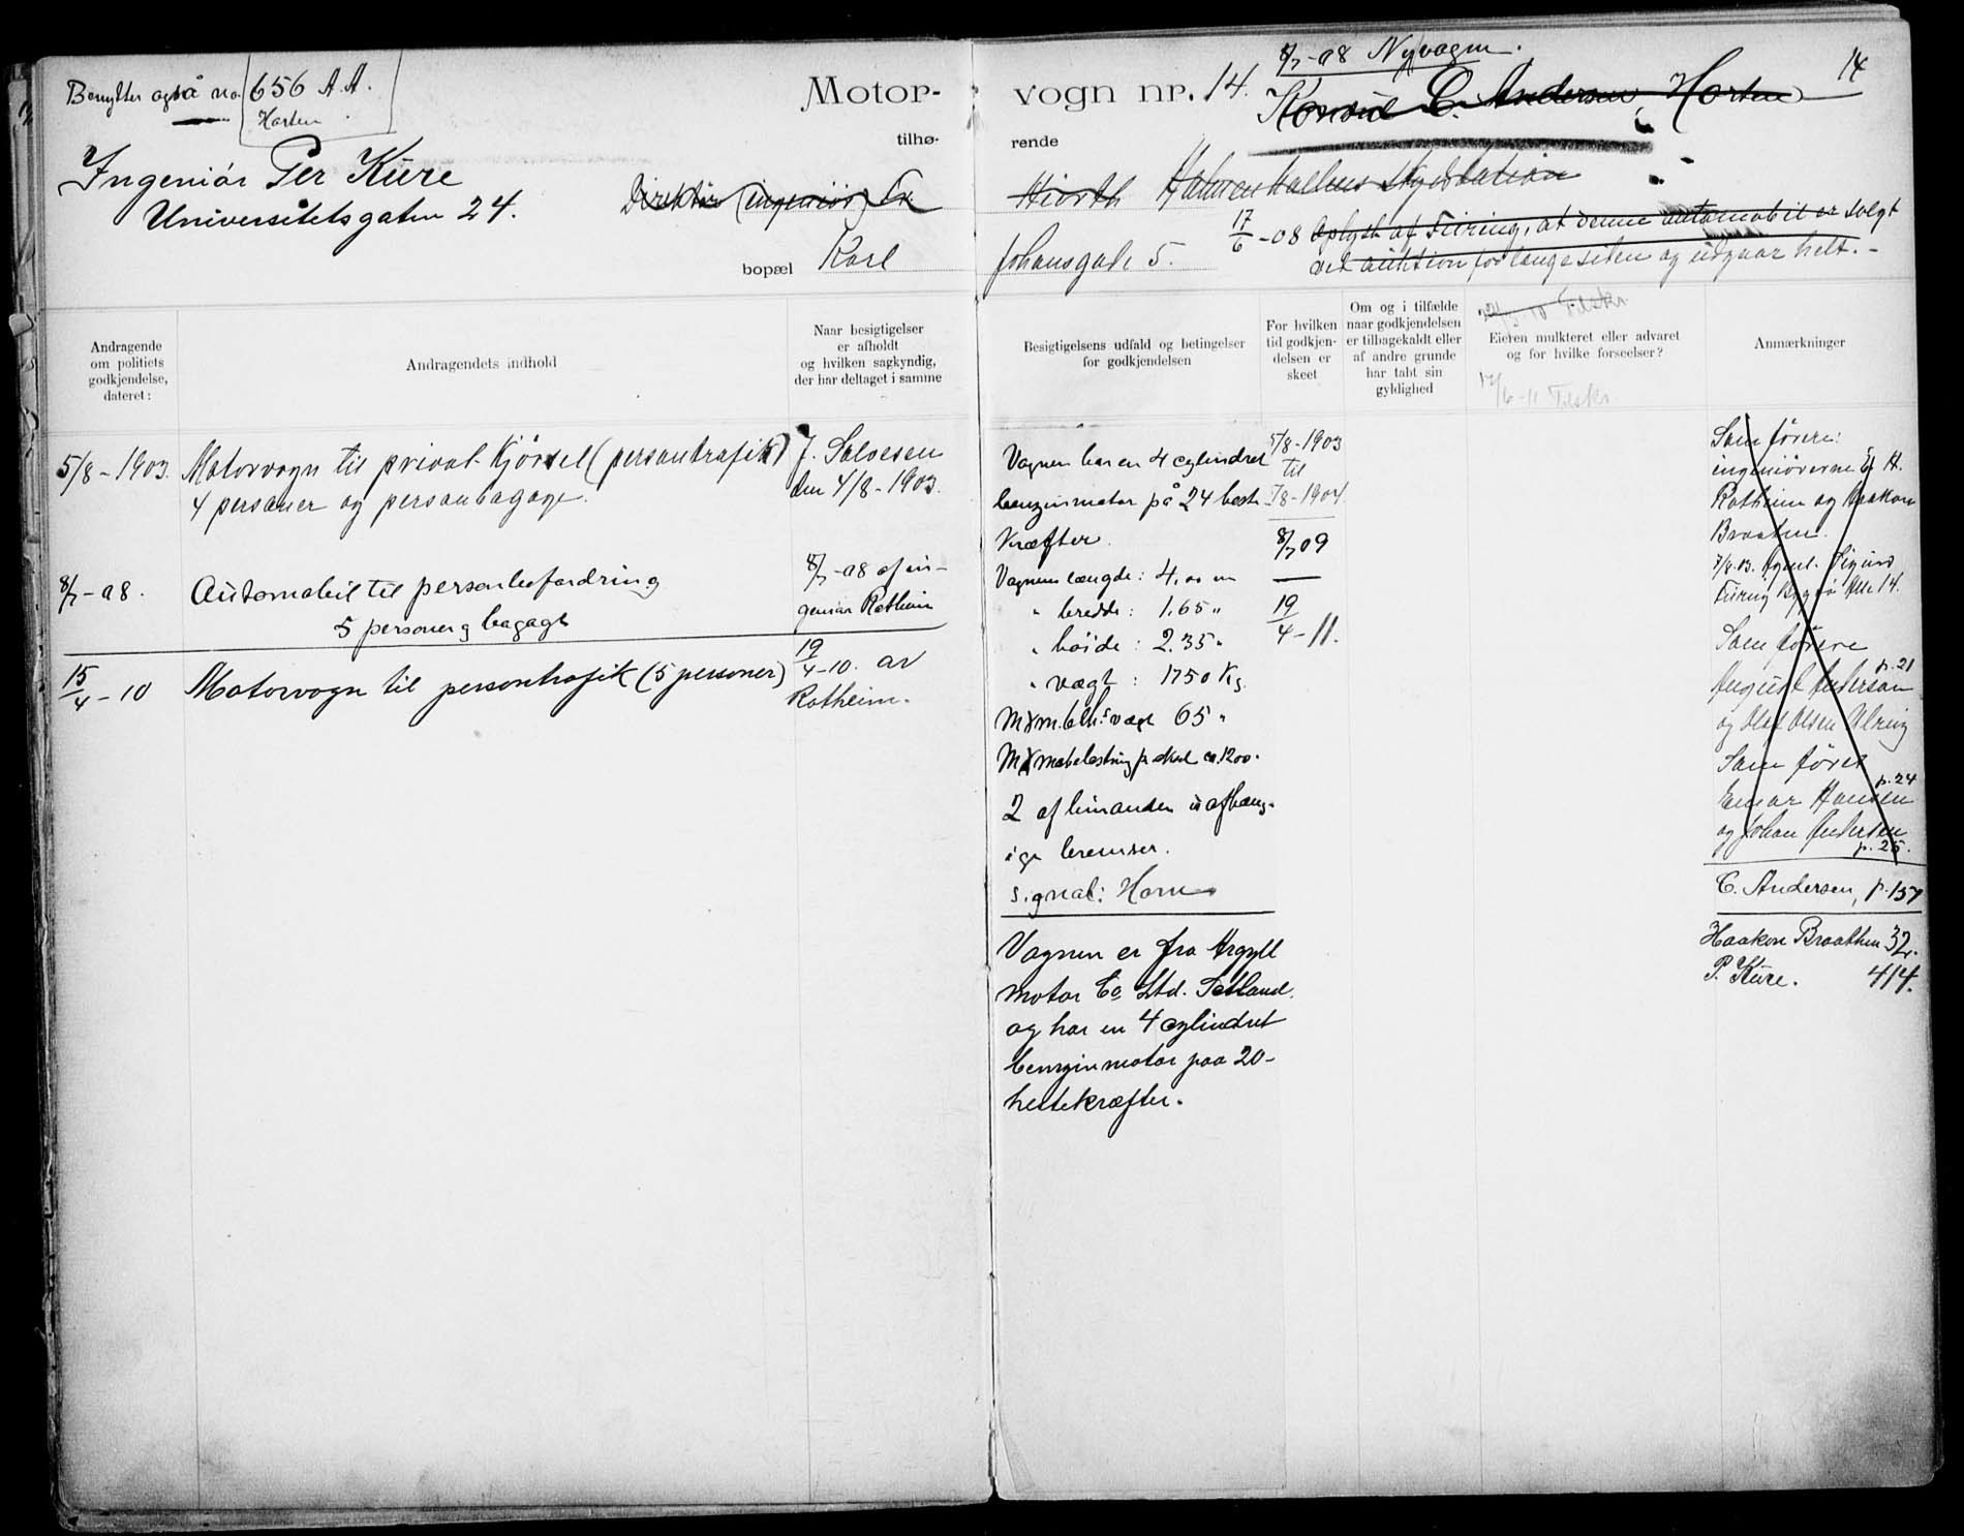 Benytter også no. 656 A.A.
Horten
Motor-
tilhø-
Ingeniør Per Küre
Universitetsgaten 24.
Direktør (ingeniør) Cr.
bopæl Karl
Andragende
om politiets
godkjendelse,
dateret:
Andragendets indhold
Naar besigtigelser
er afholdt
og hvilken sagkyndig,
der har deltaget i samme
5/8 - 1903. Motorvogn til privat Kjørsel (persontrafik)
4 personer og personbagage.
J. Salvesen
den 4/8 - 1903.
8/7 - 08. Automobil til personbefordring
5 personer og bagage
8/7 - 08 af in-
geniør Rotheim
15/4 - 10 Motorvogn til persontrafik (5 personer)
19/4 - 10. av
Rotheim.
8/7 - 08 Ny vogn.
vogn nr. 14. Konsul C. Andersen, Horten
14
rende
Hiorth Holmenkollens Skydsstation
Johansgade 5.
17/6 - 08 Oplyst af Furing, at denne automobil er solgt
ved auktion for længe siden og udgaar helt. -
Besigtigelsens udfald og betingelser
for godkjendelsen
For hvilken
tid godkjen-
delsen er
skeet
Om og i tilfælde
naar godkjendelsen
er tilbagekaldt eller
af andre grunde
har tabt sin
gyldighed
Tilskr
Eieren mulkteret eller advaret
og for hvilke forseelser?
17/6 - 11 Tilskr
Anmærkninger
Vognen har en 4 cylindret
benzinmotor på 24 heste
Kræfter.
Vognens længde: 4,00 m
" bredde: 1.65 "
" høide: 2.35 "
" vægt: 1750 Kg
65 "
ca. 1200.
2 af hinanden uafhæng-
ige bremser.
Signal: Horn
Vognen er fra Argyll
Motor Co Ltd. Scotland.
og har en 4 cylindret
benzinmotor paa 20-
hestekræfter.
5/8 - 1903
til
5/8 - 1904
8/7 09
19/4 - 11.
Som førere:
ingeniørerne H.
Rotheim og Haakon
Braaten.
Furing Bygdø Alle 14.
Som førere
p. 21
August Andersen
og Olaf Olsen Ulring
Som fører
p. 24
Einar Hansen
og Johan Andersen
p. 25.
C. Andersen, p. 157
Haakon Braathen 32.
P. Küre. 414.